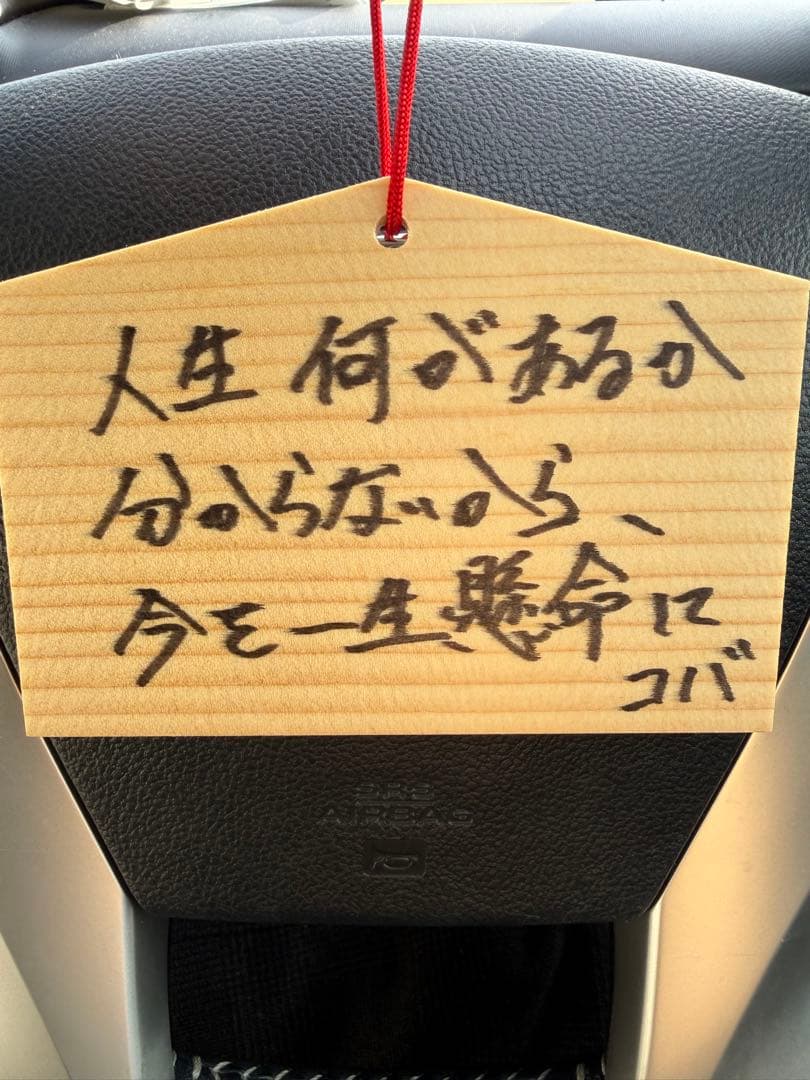 人生何があるか
分からないから、
今を一生懸命に
コバ
SRS
AIRBAG